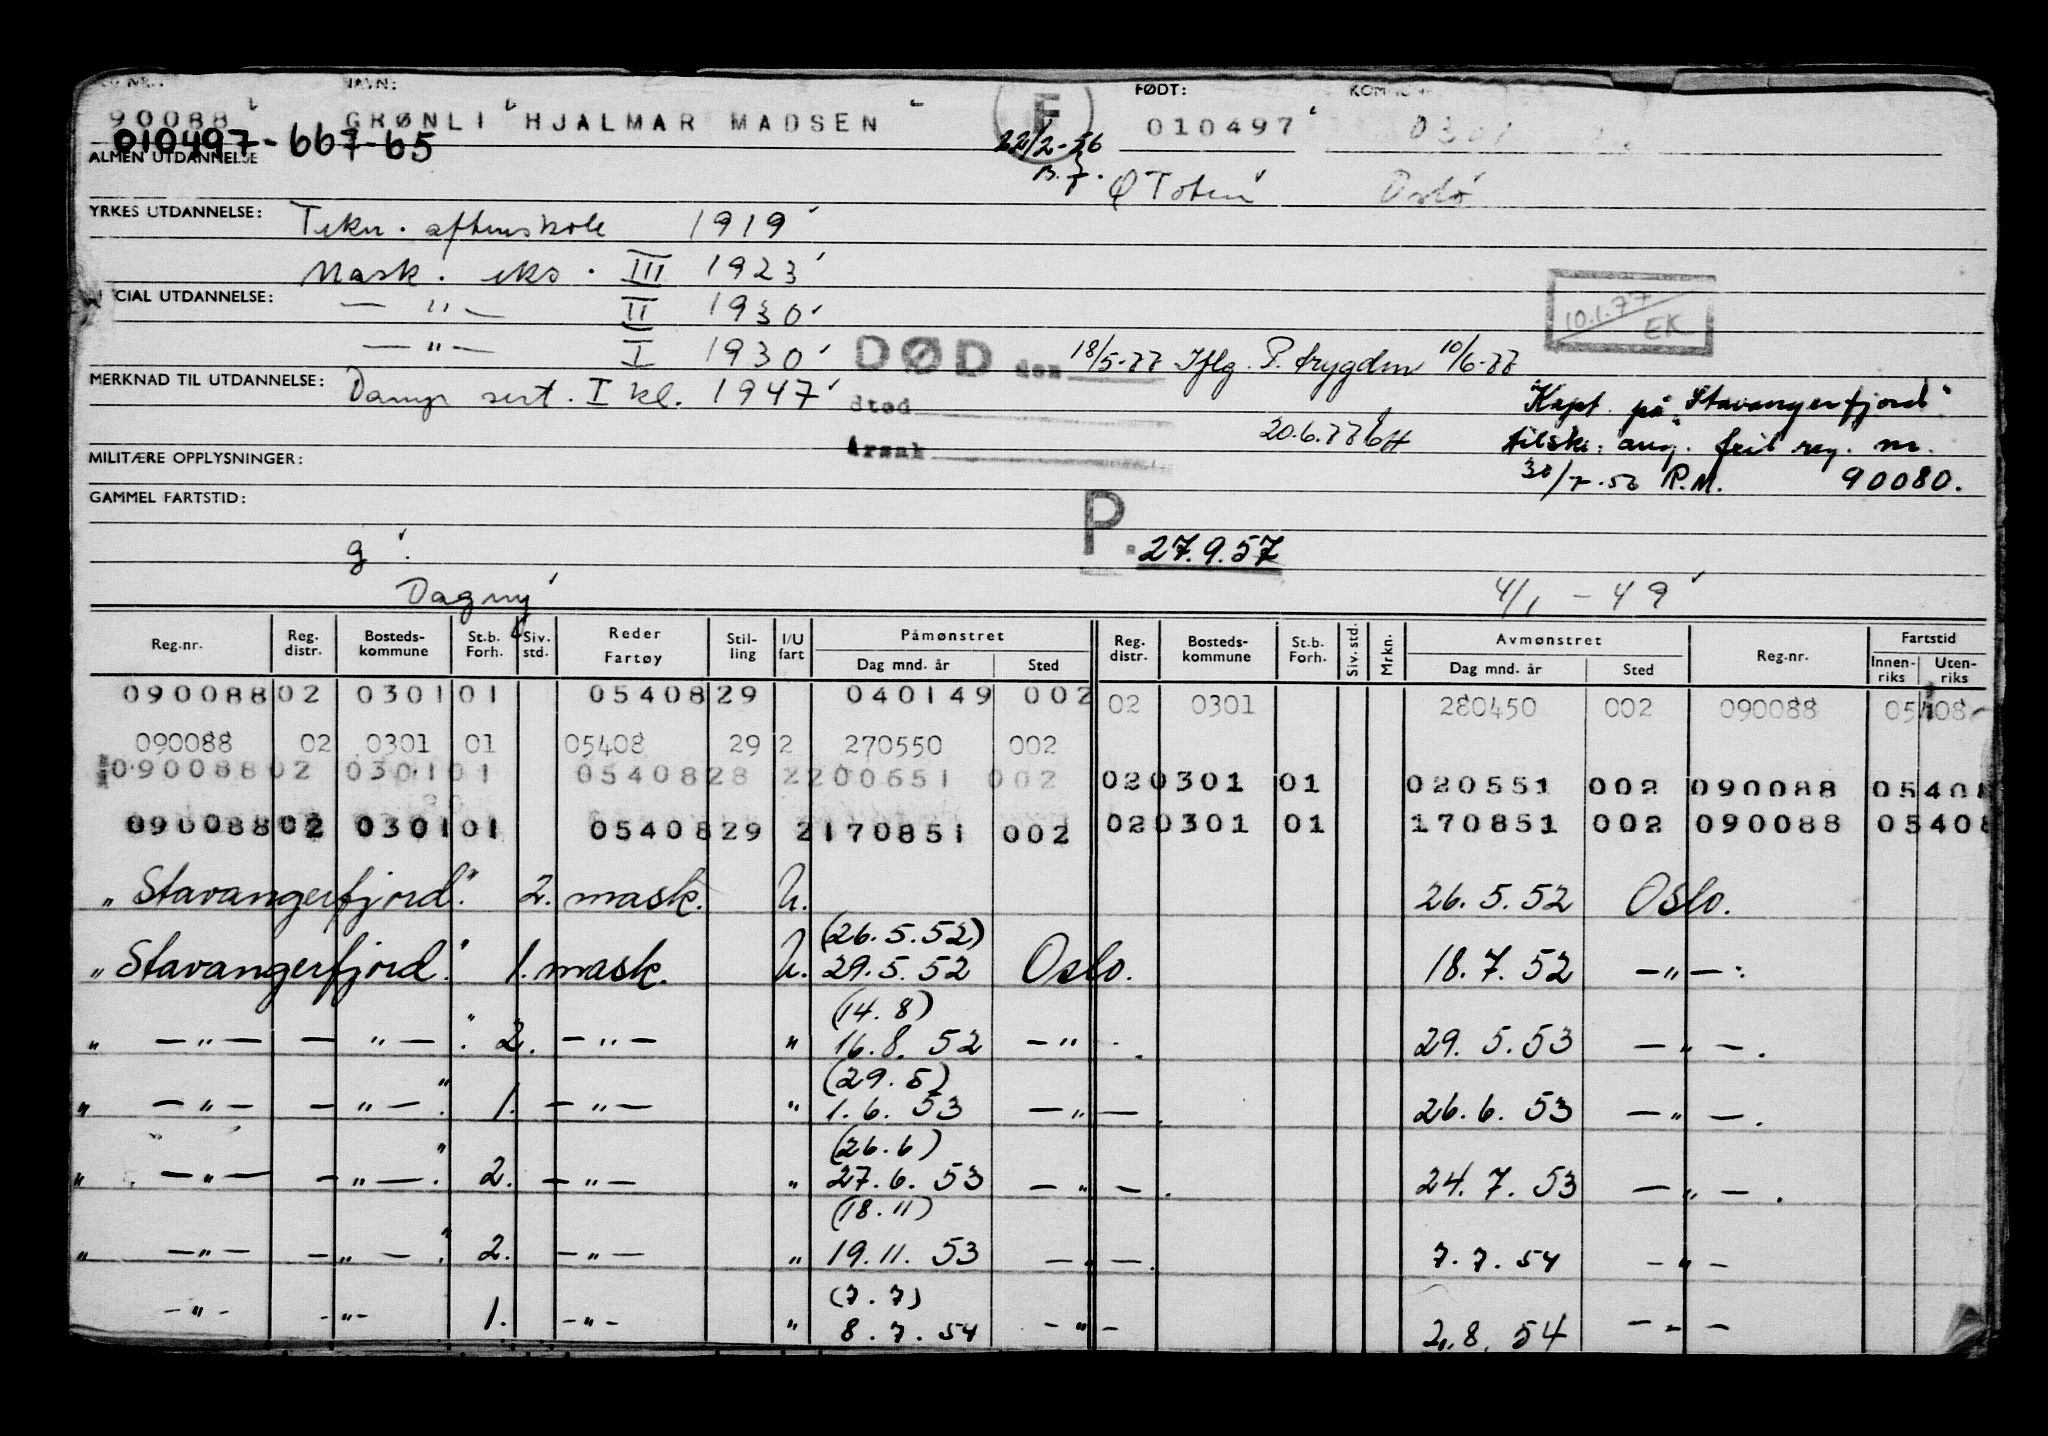 NAVN: FØDT:
90088 GRØNLI HJALMAR MADSEN F 010497 0301
010497-667-65 22/2-56
ALMEN UTDANNELSE Ø Toten Oslo
YRKES UTDANNELSE: Tekn. aftenskole 1919
Mask. eks. III 1923
CIAL UTDANNELSE: — " — II 1930
10.1.77 EK
— " — I 1930 DØD den 18/5-77 Iflg. P. trygden 10/6-77
MERKNAD TIL UTDANNELSE: Damp sert. I kl. 1947
Sted
Kapt. på "Stavangerfjord"
20.6.77
Årsak
tilskr. ang. feil reg. nr.
MILITÆRE OPPLYSNINGER:
R.M. 90080.
GAMMEL FARTSTID:
P. 27.9.57
g.
Dagny 4/1 - 49
Reg.nr. Reg. distr. Bosteds-kommune St.b. Forh. Siv. std. Reder Fartøy Stil-ling I/U fart Påmønstret Dag mnd. år Sted Reg. distr. Bosteds-kommune St.b. Forh. Siv. std. Mrkn. Avmønstret Dag mnd. år Sted Reg.nr. Fartstid Innen-riks Uten-riks
090088 02 0301 01 05408 29 040149 002 02 0301 280450 002 090088 05408
090088 02 0301 01 05408 29 2 270550 002
090088 02 0301 01 05408 28 2 200651 002 02 0301 01 020551 002 090088 05408
090088 02 0301 01 05408 29 2 170851 002 02 0301 01 170851 002 090088 05408
„Stavangerfjord". 2. mask. U. 26. 5. 52 Oslo.
(26. 5. 52)
„Stavangerfjord". 1. mask. U. 29. 5. 52 Oslo. 18. 7. 52 — " —
(14. 8)
„ — " — — " — ". 2. — " — " 16. 8. 52 — " — . 29. 5. 53 — " — .
(29. 5)
„ — " — — " — ". 1. — " — " 1. 6. 53 — " — . 26. 6. 53 — " — .
(26. 6)
„ — " — — " — ". 2. — " — " 27. 6. 53 — " — . 24. 7. 53 — " — .
(18. 11)
„ — " — — " — ". 2. — " — " 19. 11. 53 — " — . 7. 7. 54 — " —
(7. 7)
— " — — " — 1. — " — " 8. 7. 54 — " — 2. 8. 54 — " —